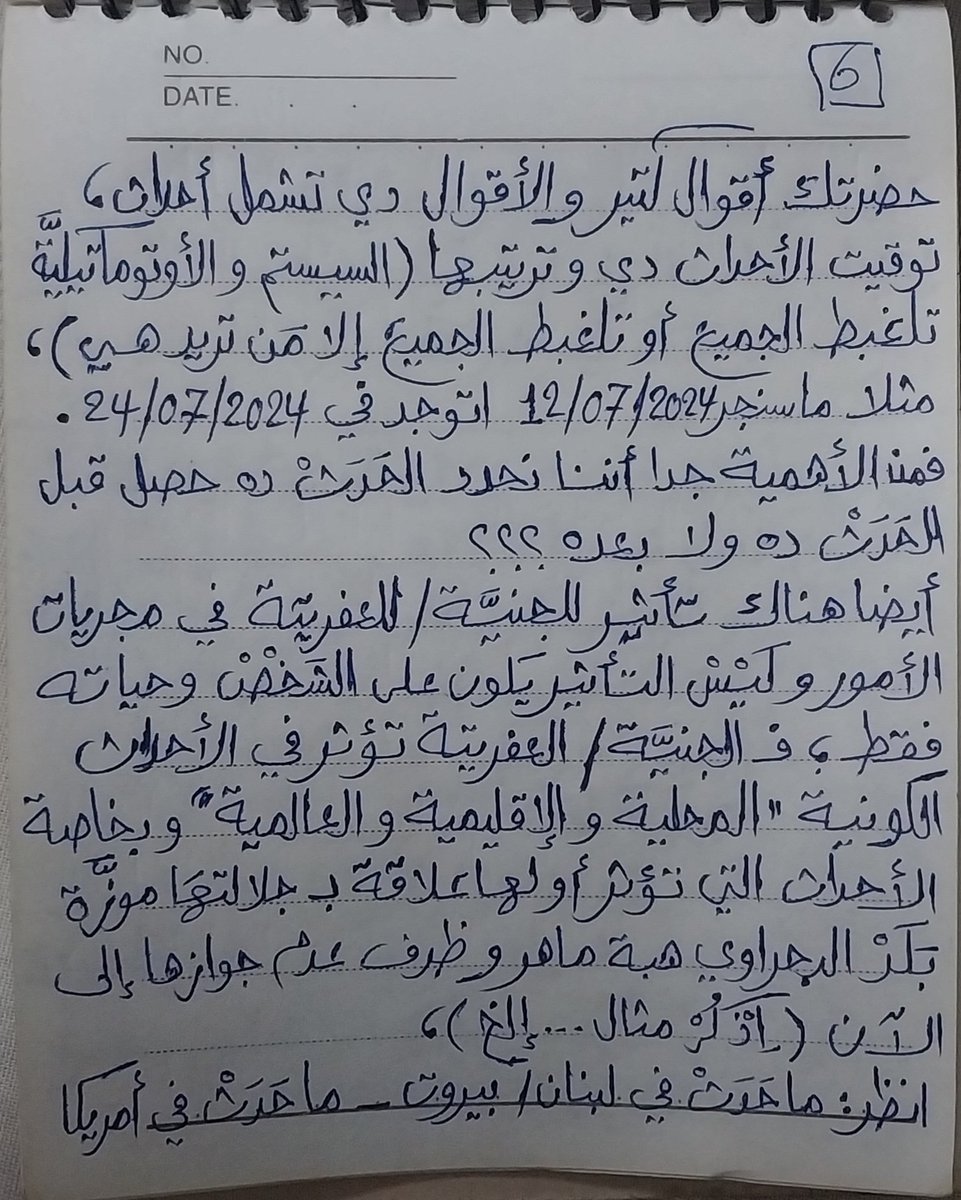 NO.
DATE. . .
6
حضرتك أقوال كتير والأقوال دي تشمل أحداث،
توقيت الأحداث دي وترتيبها (السيستم والأوتوماتيكيَّة
تلغبط الجميع أو تلغبط الجميع إلا مَن تريد هي)،
مثلا ماسنجر 12/07/2024 اتوجد في 24/07/2024.
فمن الأهمية جدا أننا نحدد الحَدَثْ ده حصل قبل
الحَدَثْ ده ولا بعده ؟؟؟
أيضا هناك تأثير للجنيَّة/للعفريتة في مجريات
الأمور وَلَيْسْ التأثير يَكون على الشَخْصْ وحياته
فقط، فـ الجنيَّة/العفريتة تؤثر في الأحداث
الكونية "المحلية والإقليمية والعالمية" وبخاصة
الأحداث التي تؤثر أو لها علاقة بـ جلالتهَا موزَّة
بَكَرْ هبة ماهر وظرف عدم جوازها إلى
الآن (اِذْكُرْ مثال ... إلخ)،
انظر: ما حَدَثْ في لبنان/بيروت - ما حَدَثْ في أمريكا